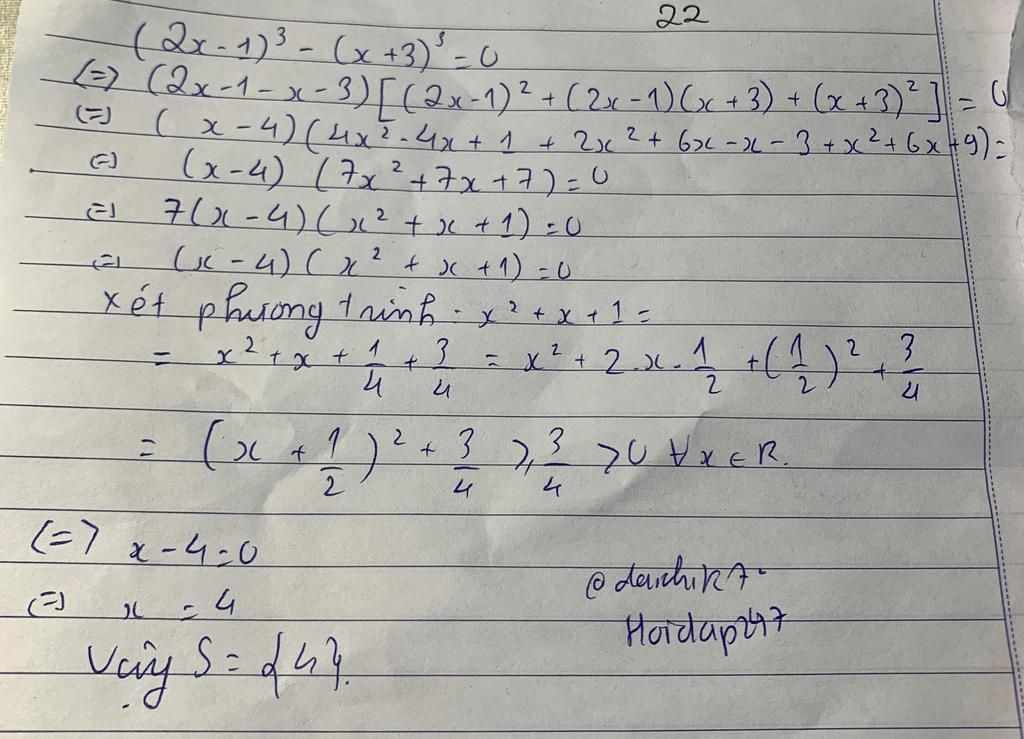 22
(2x-1)³ - (x+3)³ = 0
(=) (2x-1-x-3)[(2x-1)² + (2x-1)(x+3) + (x+3)²] = 0
(=) (x-4)(4x²-4x+1 + 2x²+6x-x-3+x²+6x+9)=
(=) (x-4) (7x²+7x+7)=0
(=) 7(x-4)(x²+x+1)=0
(=) (x-4)(x²+x+1)=0
xét phương trình. x²+x+1=
= x²+x+1/4+3/4 = x²+2.x.1/2+(1/2)²+3/4
= (x+1/2)²+3/4 ⩾ 3/4 >0 ∀x∈R.
(=) x-4=0
(=) x = 4
Vậy S = {4}.
@daichik7.
Hoidap247